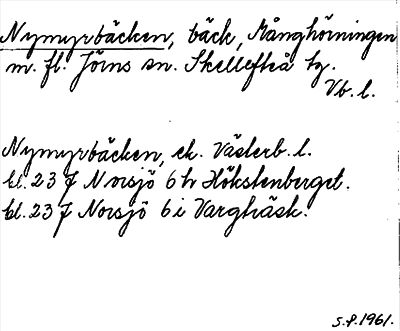 Nymyrbäcken, bäck, Månghörningen
m. fl. Jörns sn. Skellefteå tg.
Vb. l.
Nymyrbäcken, ek. Västerb. l.
bl. 23 J Norsjö 6 h Hökstenberget.
bl. 23 J Norsjö 6 i Vargträsk.
S.P. 1961.